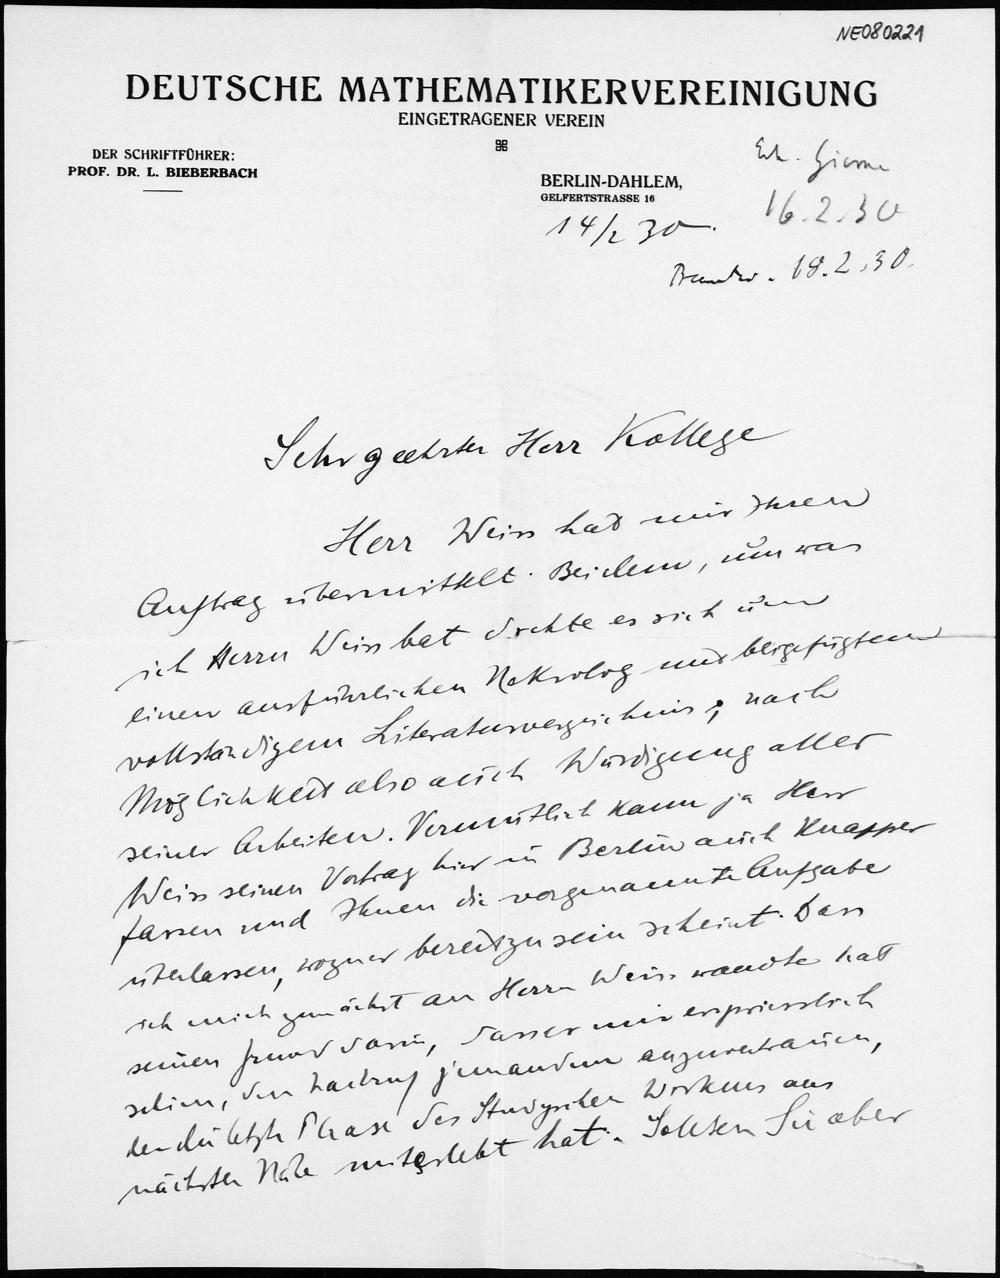 NE080221
DEUTSCHE MATHEMATIKERVEREINIGUNG
EINGETRAGENER VEREIN
DER SCHRIFTFÜHRER:
PROF. DR. L. BIEBERBACH
BERLIN-DAHLEM,
GELFERTSTRASSE 16
14/2 30.
16.2.30
18.2.30.
Sehr geehrter Herr Kollege
Herr Weiss hat mir Ihren
Auftrag übermittelt. Bei dem, um was
ich Herrn Weiss bat drehte es sich um
einen ausführlichen Nekrolog und beigefügtem
vollständigem Literaturverzeichnis; nach
Möglichkeit also auch Würdigung aller
seiner Arbeiten. Vermutlich kann ja Herr
Weiss seinen Vortrag hier in Berlin auch knapper
fassen und Ihnen die vorgenannte Aufgabe
überlassen, wozu er bereit zu sein scheint. Dass
ich mich zunächst an Herrn Weiss wandte hat
seinen Grund darin, dass er mir erspriesslich
schien, den Nachruf jemandem anzuvertrauen,
der die letzte Phase des Studyschen Wirkens aus
nächster Nähe miterlebt hat. Sollten Sie aber